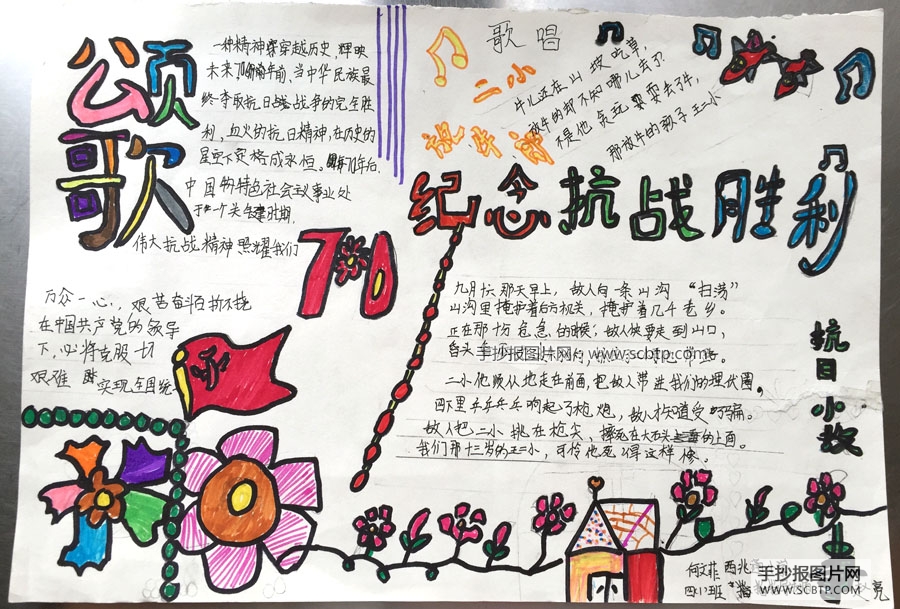 颂歌
一种精神穿越历史,辉映
未来70年前,当中华民族最
终争取抗日战争的完全胜
利,血火的抗日精神,在历史的
星空下定格成永恒。70年后,
中国特色社会主义事业处
于一个关键时期,
伟大抗战精神照耀我们
万众一心,艰苦奋斗
在中国共产党的领导
下,必将克服一切
艰难
实现全国统一
70
歌唱
二小
放牛郎
牛儿还在山坡吃草,
放牛的却不知哪儿去了
不是他贪玩耍丢了牛,
那放牛的孩子王二小
纪念抗战胜利
九月十六那天早上,敌人向一条山沟“扫荡”
山沟里掩护着后方机关,掩护着几千老乡。
正在那十分危急的时候,敌人快要走到山口,
手抄报图片网 www.scbtp.com
二小他顺从地走在前面,把敌人带进我们的埋伏圈,
四下里乒乒乓乓响起了枪炮,敌人才知道受
敌人把二小挑在枪尖,摔死在大石头的上面。
我们那十三岁的王二小,可怜他死得这样惨。
抗日小故
何文菲
四(1)班
手抄报图片网
WWW.SCBTP.COM
亮